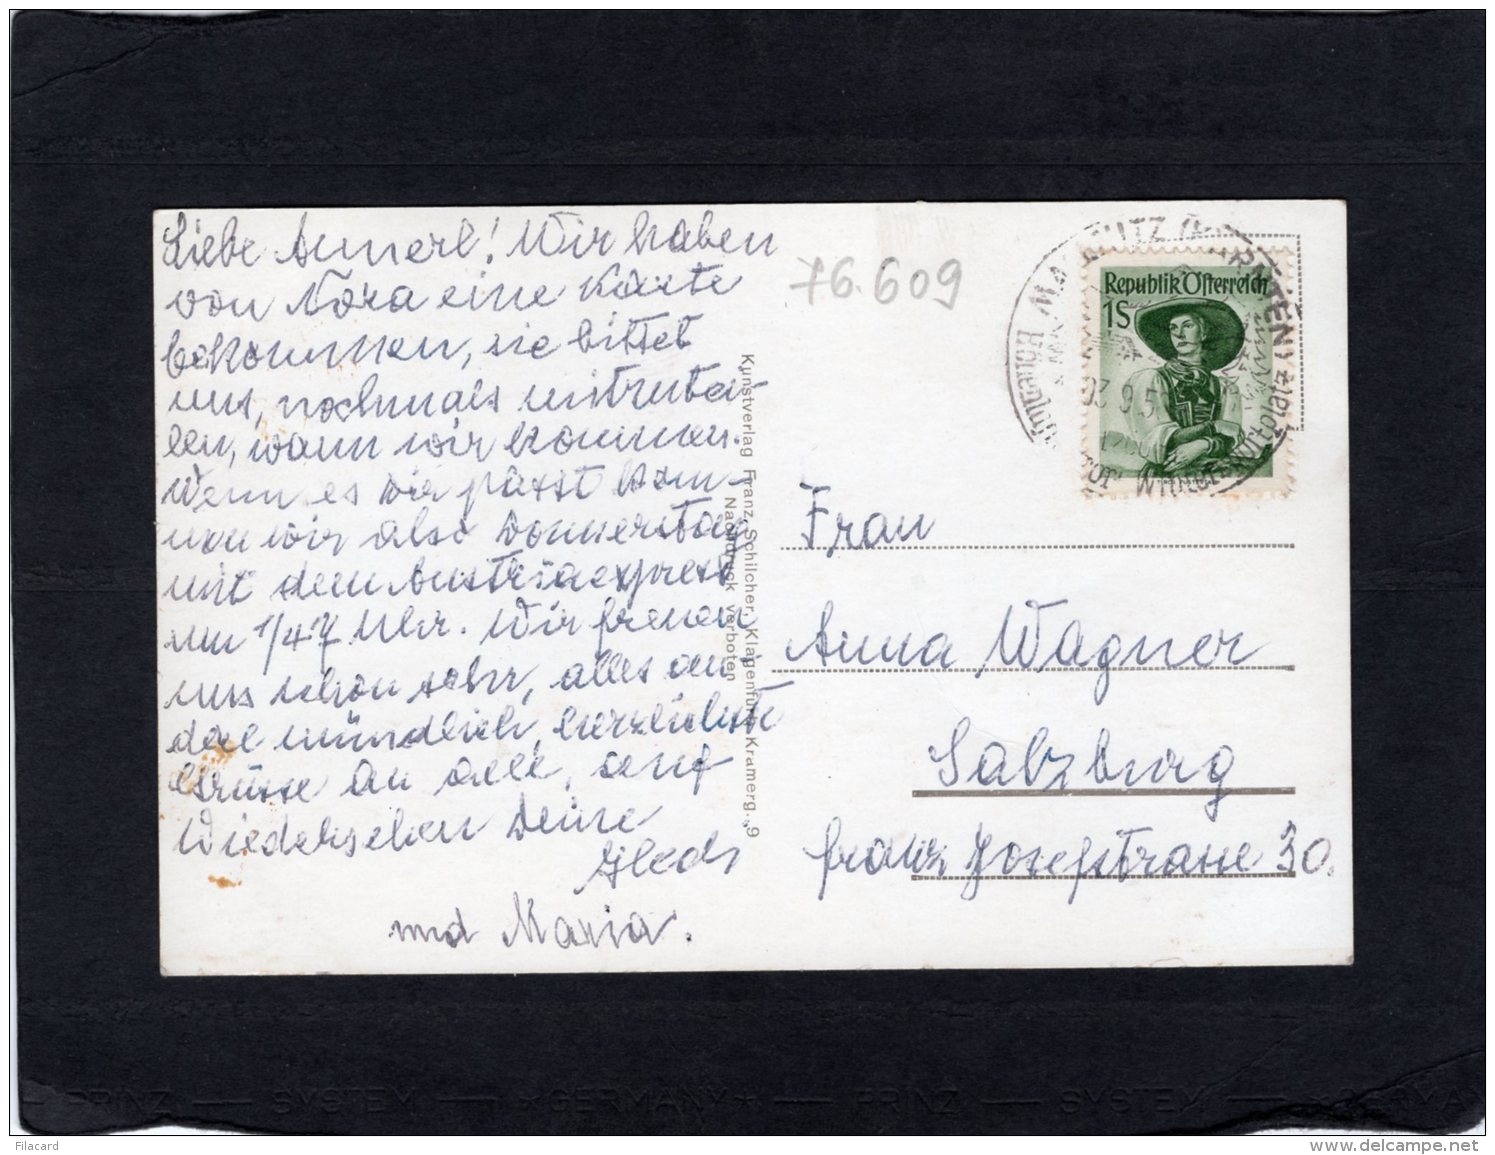 Liebe Annerl! Wir haben
von Nora eine Karte
bekommen, sie bittet
uns, nochmals mitzutei-
len, wann wir kommen.
Wenn es Dir passt kom-
men wir also Donnerstag
mit dem Austriaexpress
um 1/47 Uhr. Wir freuen
uns schon sehr, alles an-
dere mündlich, herzlichste
Grüsse an alle, auf
Wiedersehen Deine
und Maria.
76.609
Kunstverlag Franz Schilcher, Klagenfurt, Kramerg. 9
Nachdruck verboten
Republik Österreich
1S
Frau
Anna Wagner
Salzburg
Franz Josefstrasse 30.
PRINZ — SYSTEM — *GERMANY* — PRINZ — SYSTEM — *GERMA
Filacard
www.delcampe.net